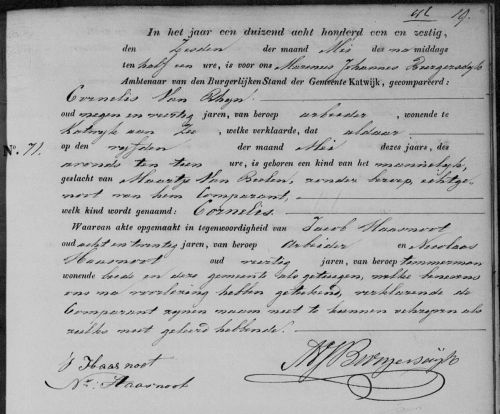 19.
In het jaar een duizend acht honderd een en zestig,
den Zesden der maand Mei des na middags
ten half een ure, is voor ons Marinus Johannes Burgersdijk
Ambtenaar van den Burgerlijken Stand der Gemeente Katwijk, gecompareerd:
Cornelis Van Rhijn
oud negen en veertig jaren, van beroep arbeider, wonende te
Katwijk aan Zee, welke verklaarde, dat aldaar
N°. 71. op den vijfden der maand Mei dezes jaars, des
avonds ten tien ure, is geboren een kind van het mannelijk
geslacht van Maartje Van Beelen, zonder beroep, echtge-
noot van hem Comparant,
welk kind wordt genaamd: Cornelis.
Waarvan akte opgemaakt in tegenwoordigheid van Jacob Haasnoot
oud acht en twintig jaren, van beroep Arbeider en Nicolaas
Haasnoot oud veertig jaren, van beroep timmerman
wonende beide en deze gemeente als getuigen, welke benevens
ons na voorlezing hebben geteekend, verklarende de
Comparant zijnen naam niet te kunnen schrijven als
zulks niet geleerd hebbende.
J Haasnoot
Ns. Haasnoot
MJ Burgersdijk